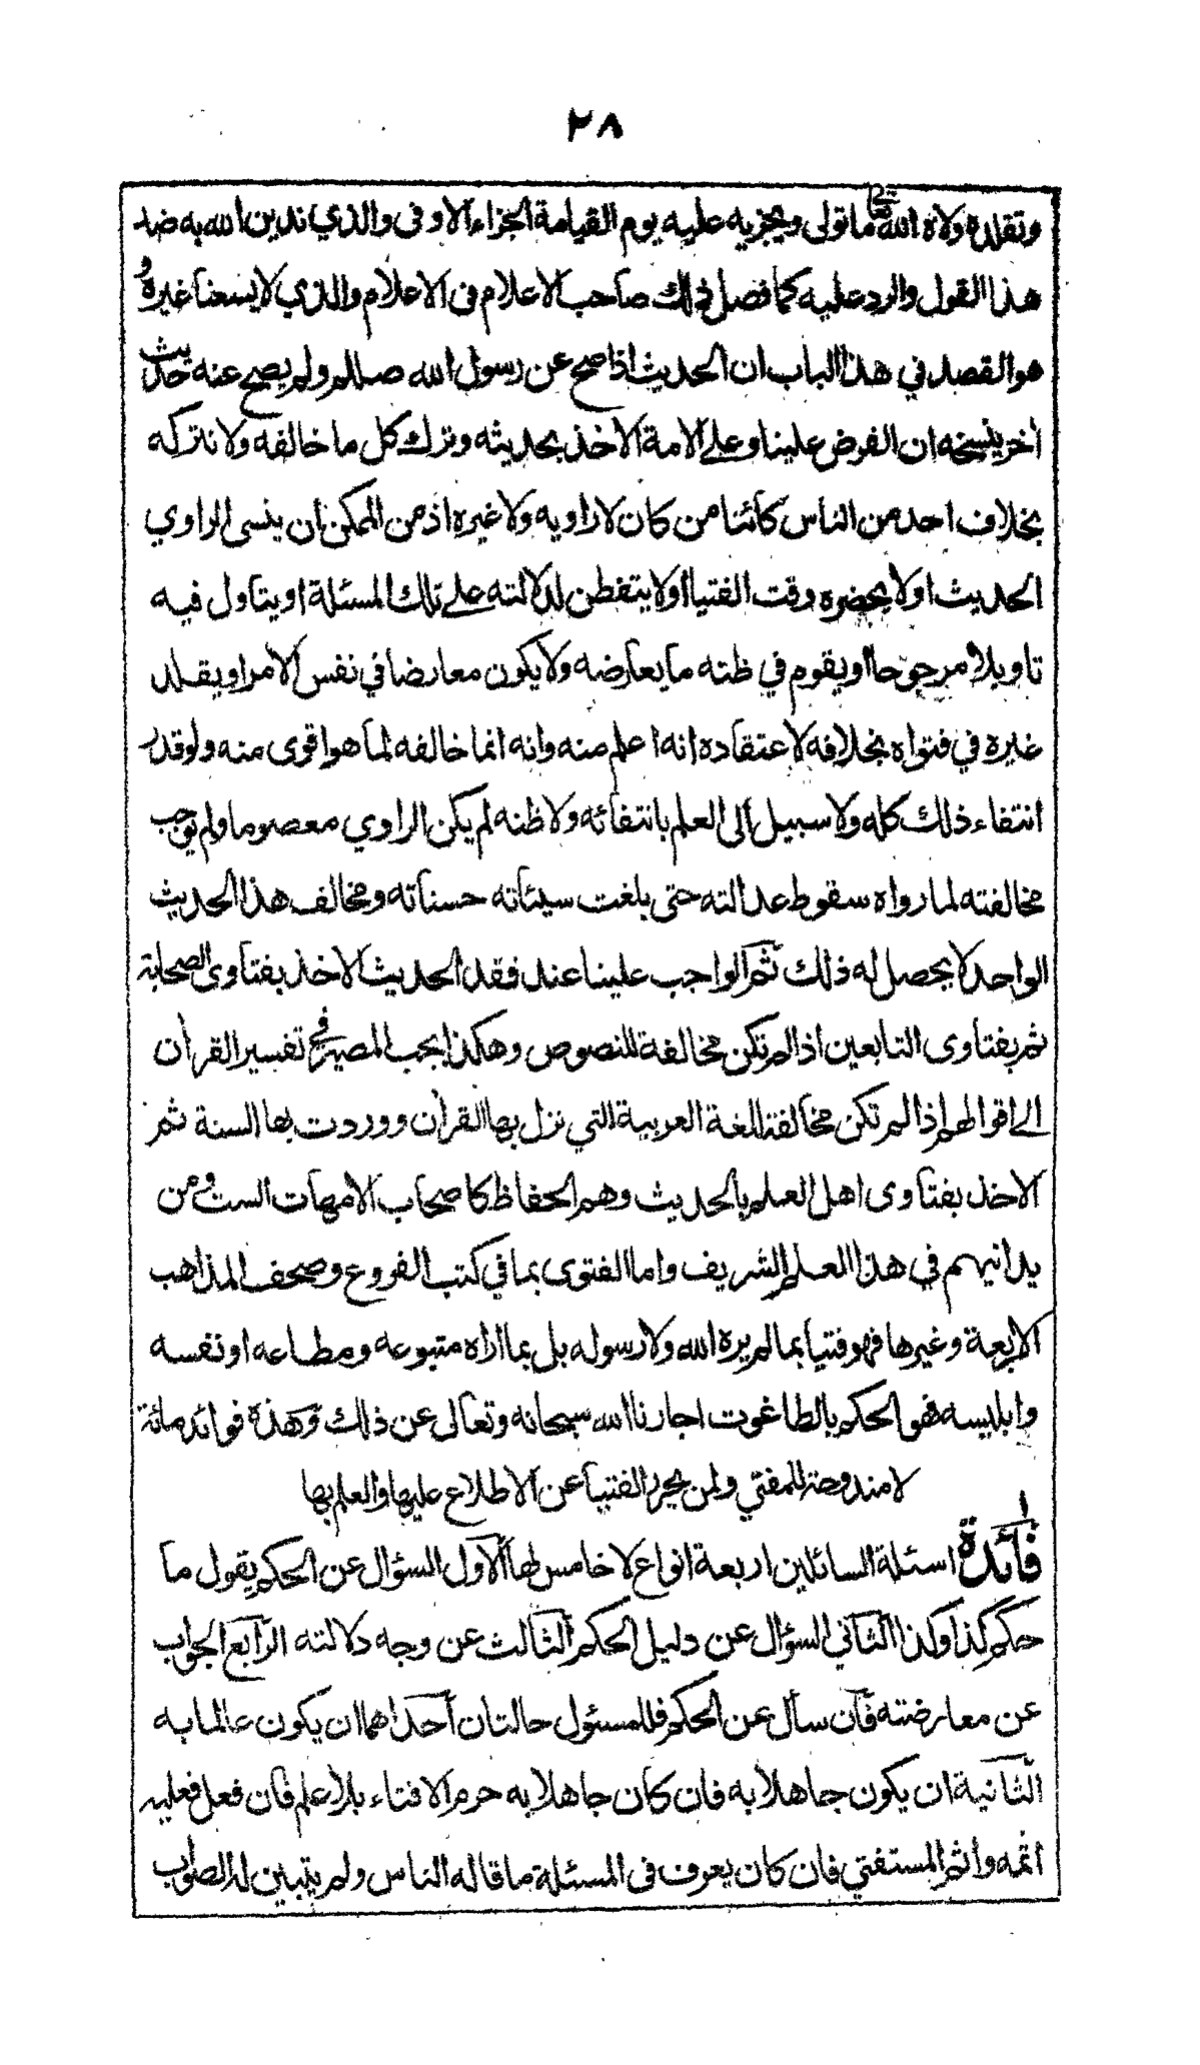 ٢٨
وتقلده ولاه الله ما تولى ويجزيه عليه يوم القيامة الجزاء الاوفى والذي ندين الله به ضد
هذا القول والرد عليه كما فصل ذلك صاحب الاعلام فى الاعلام والذي لا يسعنا غيره و
هو القصد في هذا الباب ان الحديث اذا صح عن رسول الله صللم ولم يصح عنه حديث
اخر ينسخه ان الفرض علينا وعلى الامة الاخذ بحديثه وترك كل ما خالفه ولا نتركه
بخلاف احد من الناس كائنا من كان لا راويه ولا غيره اذ من الممكن ان ينسى الراوي
الحديث او لا يحضره وقت الفتيا او لا يتفطن لدلالته على تلك المسئلة او يتاول فيه
تاويلا مرجوحا او يقوم في ظنه ما يعارضه ولا يكون معارضا في نفس الامر او يقلد
غيره في فتواه بخلافه لاعتقاده انه اعلم منه وانه انما خالفه لما هو اقوى منه ولو قدر
انتفاء ذلك كله ولا سبيل الى العلم بانتفائه ولا ظنه لم يكن الراوي معصوما ولم يوجب
مخالفته لما رواه سقوط عدالته حتى بلغت سيئاته حسناته ومخالف هذا الحديث
الواحد لا يحصل له ذلك ثم الواجب علينا عند فقد الحديث الاخذ بفتاوى الصحابة
ثم بفتاوى التابعين اذا لم تكن مخالفة للنصوص وهكذا يجب المصير في تفسير القرأن
الى اقوالهم اذا لم تكن مخالفة للغة العربية التي نزل بها القرأن ووردت بها السنة ثم
الاخذ بفتاوى اهل العلم بالحديث وهم الحفاظ كاصحاب الامهات الست ومن
يدانيهم في هذا العلم الشريف واما الفتوى بما في كتب الفروع وصحف المذاهب
الاربعة وغيرها فهو فتيا بما لم يره الله ولا رسوله بل بما اراه متبوعه ومطاعه او نفسه
وابليسه فهو الحكم بالطاغوت اجارنا الله سبحانه وتعالى عن ذلك وهذه فوائد مائة
لا مندوحة للمفتي ولمن يحرر الفتيا عن الاطلاع عليها والعلم بها
١
فائدة اسئلة السائلين اربعة انواع لا خامس لها الاول السؤال عن الحكم يقول ما
حكم كذا وكذا الثاني السؤال عن دليل الحكم الثالث عن وجه دلالته الرابع الجواب
عن معارضته فان سأل عن الحكم فللمسئول حالتان احداهما ان يكون عالما به
الثانية ان يكون جاهلا به فان كان جاهلا به حرم الافتاء بلا علم فان فعل فعليه
اثمه واثم المستفتي فان كان يعرف فى المسئلة ما قاله الناس ولم يتبين له الصواب